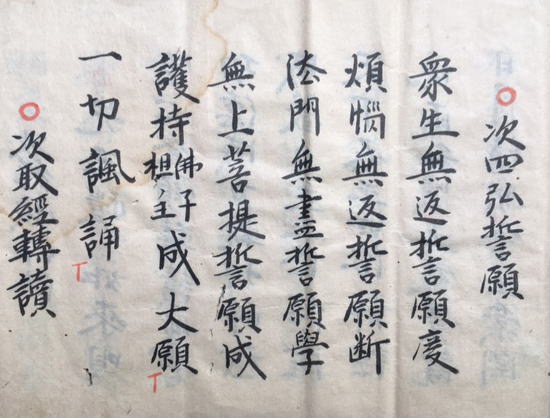 ○次四弘誓願
衆生無返誓願度
煩惱無返誓願断
法門無盡誓願學
無上菩提誓願成
護持佛子柦主成大願
一切諷誦
○次取經轉讀